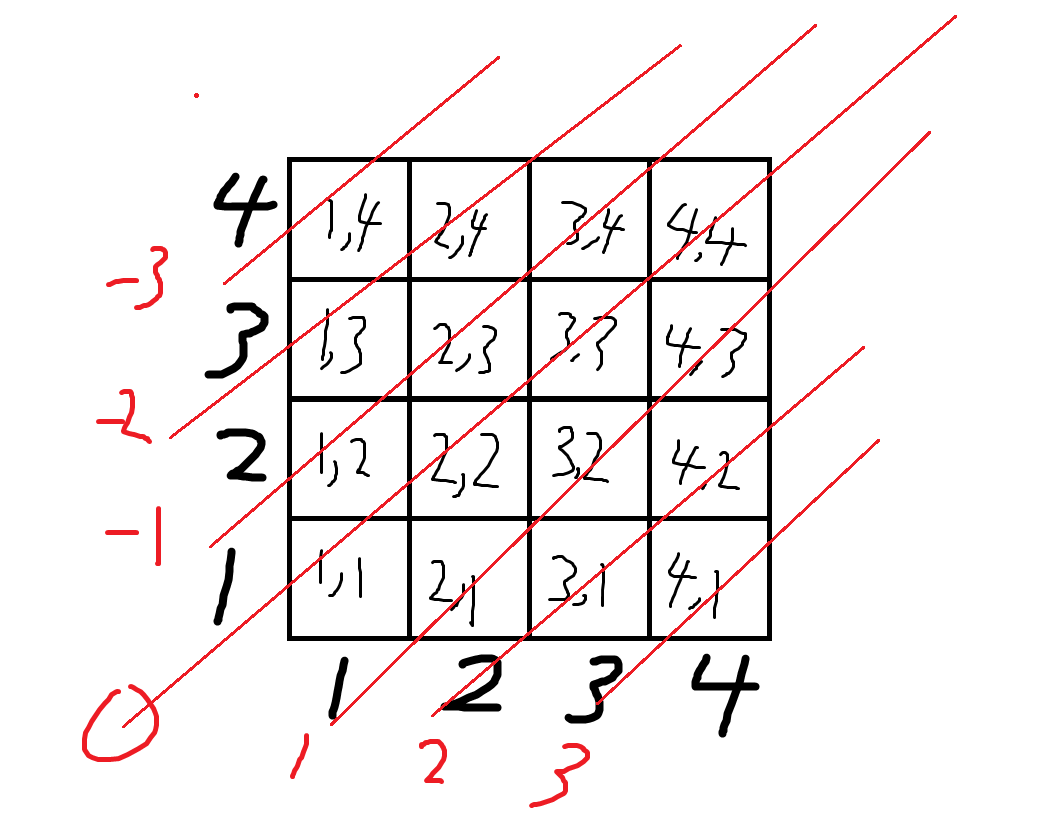 4 1,4 2,4 3,4 4,4
-3
3 1,3 2,3 3,3 4,3
-2
2 1,2 2,2 3,2 4,2
-1
1 1,1 2,1 3,1 4,1
1 2 3 4
0 1 2 3